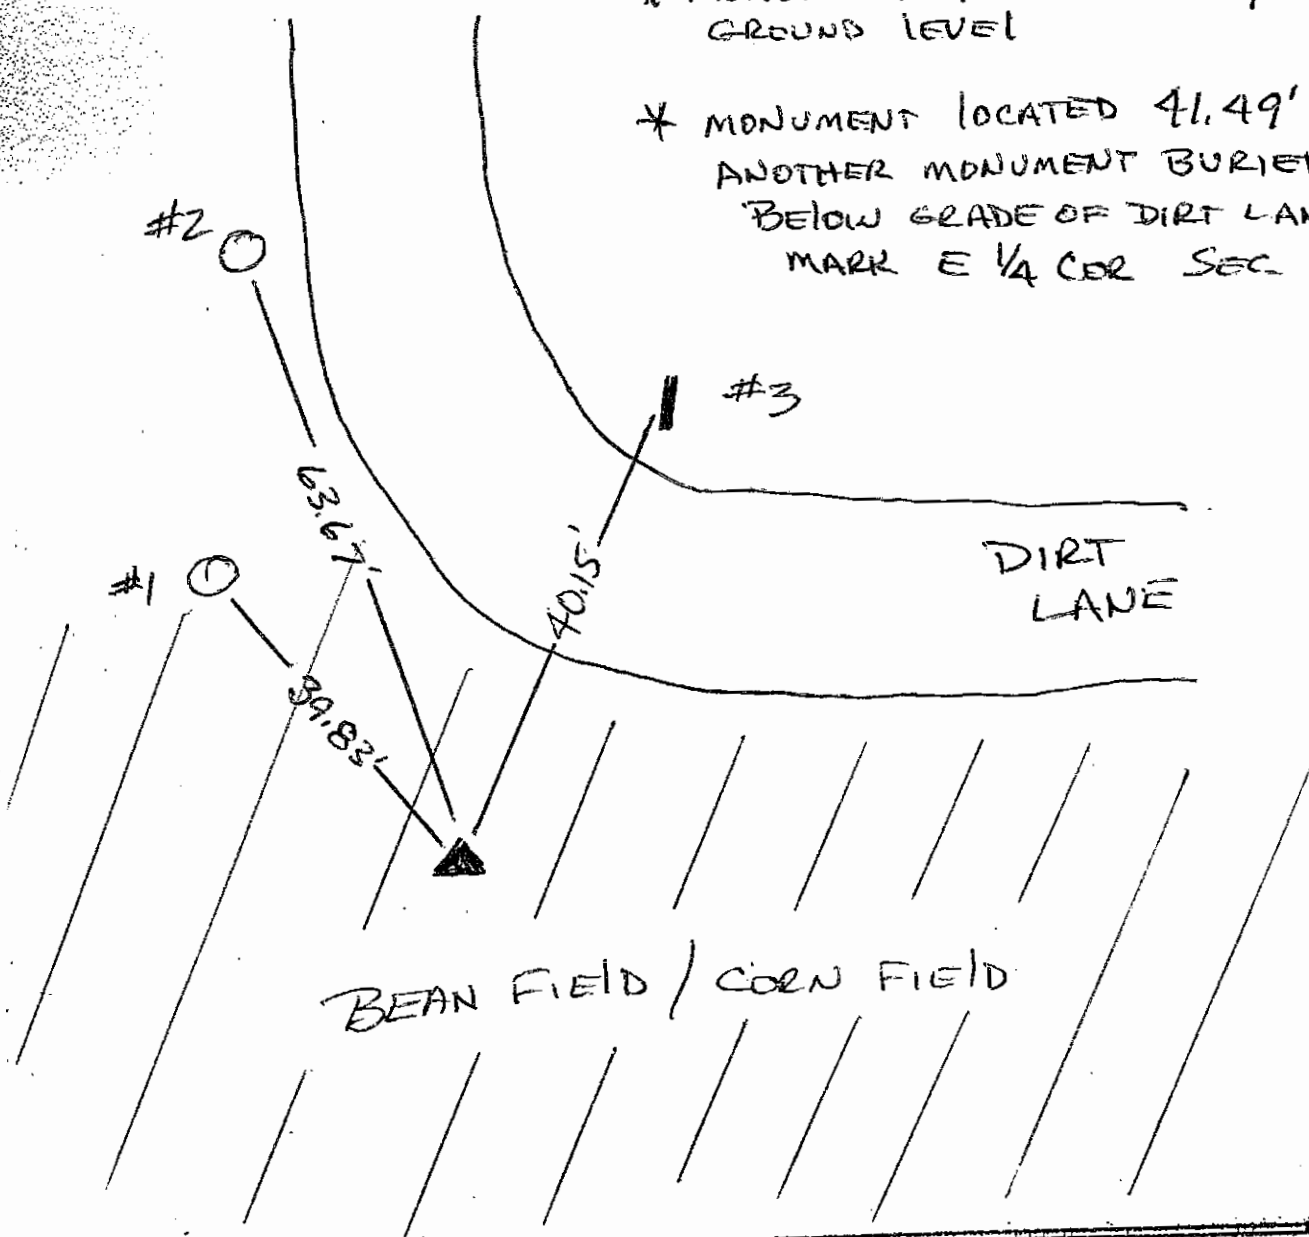 GROUND LEVEL
* MONUMENT LOCATED 41.49'
ANOTHER MONUMENT BURIE
BELOW GRADE OF DIRT LAN
MARK E 1/4 COR SEC
#2
#3
63.67'
#1
40.15'
DIRT
LANE
39.83'
BEAN FIELD / CORN FIELD